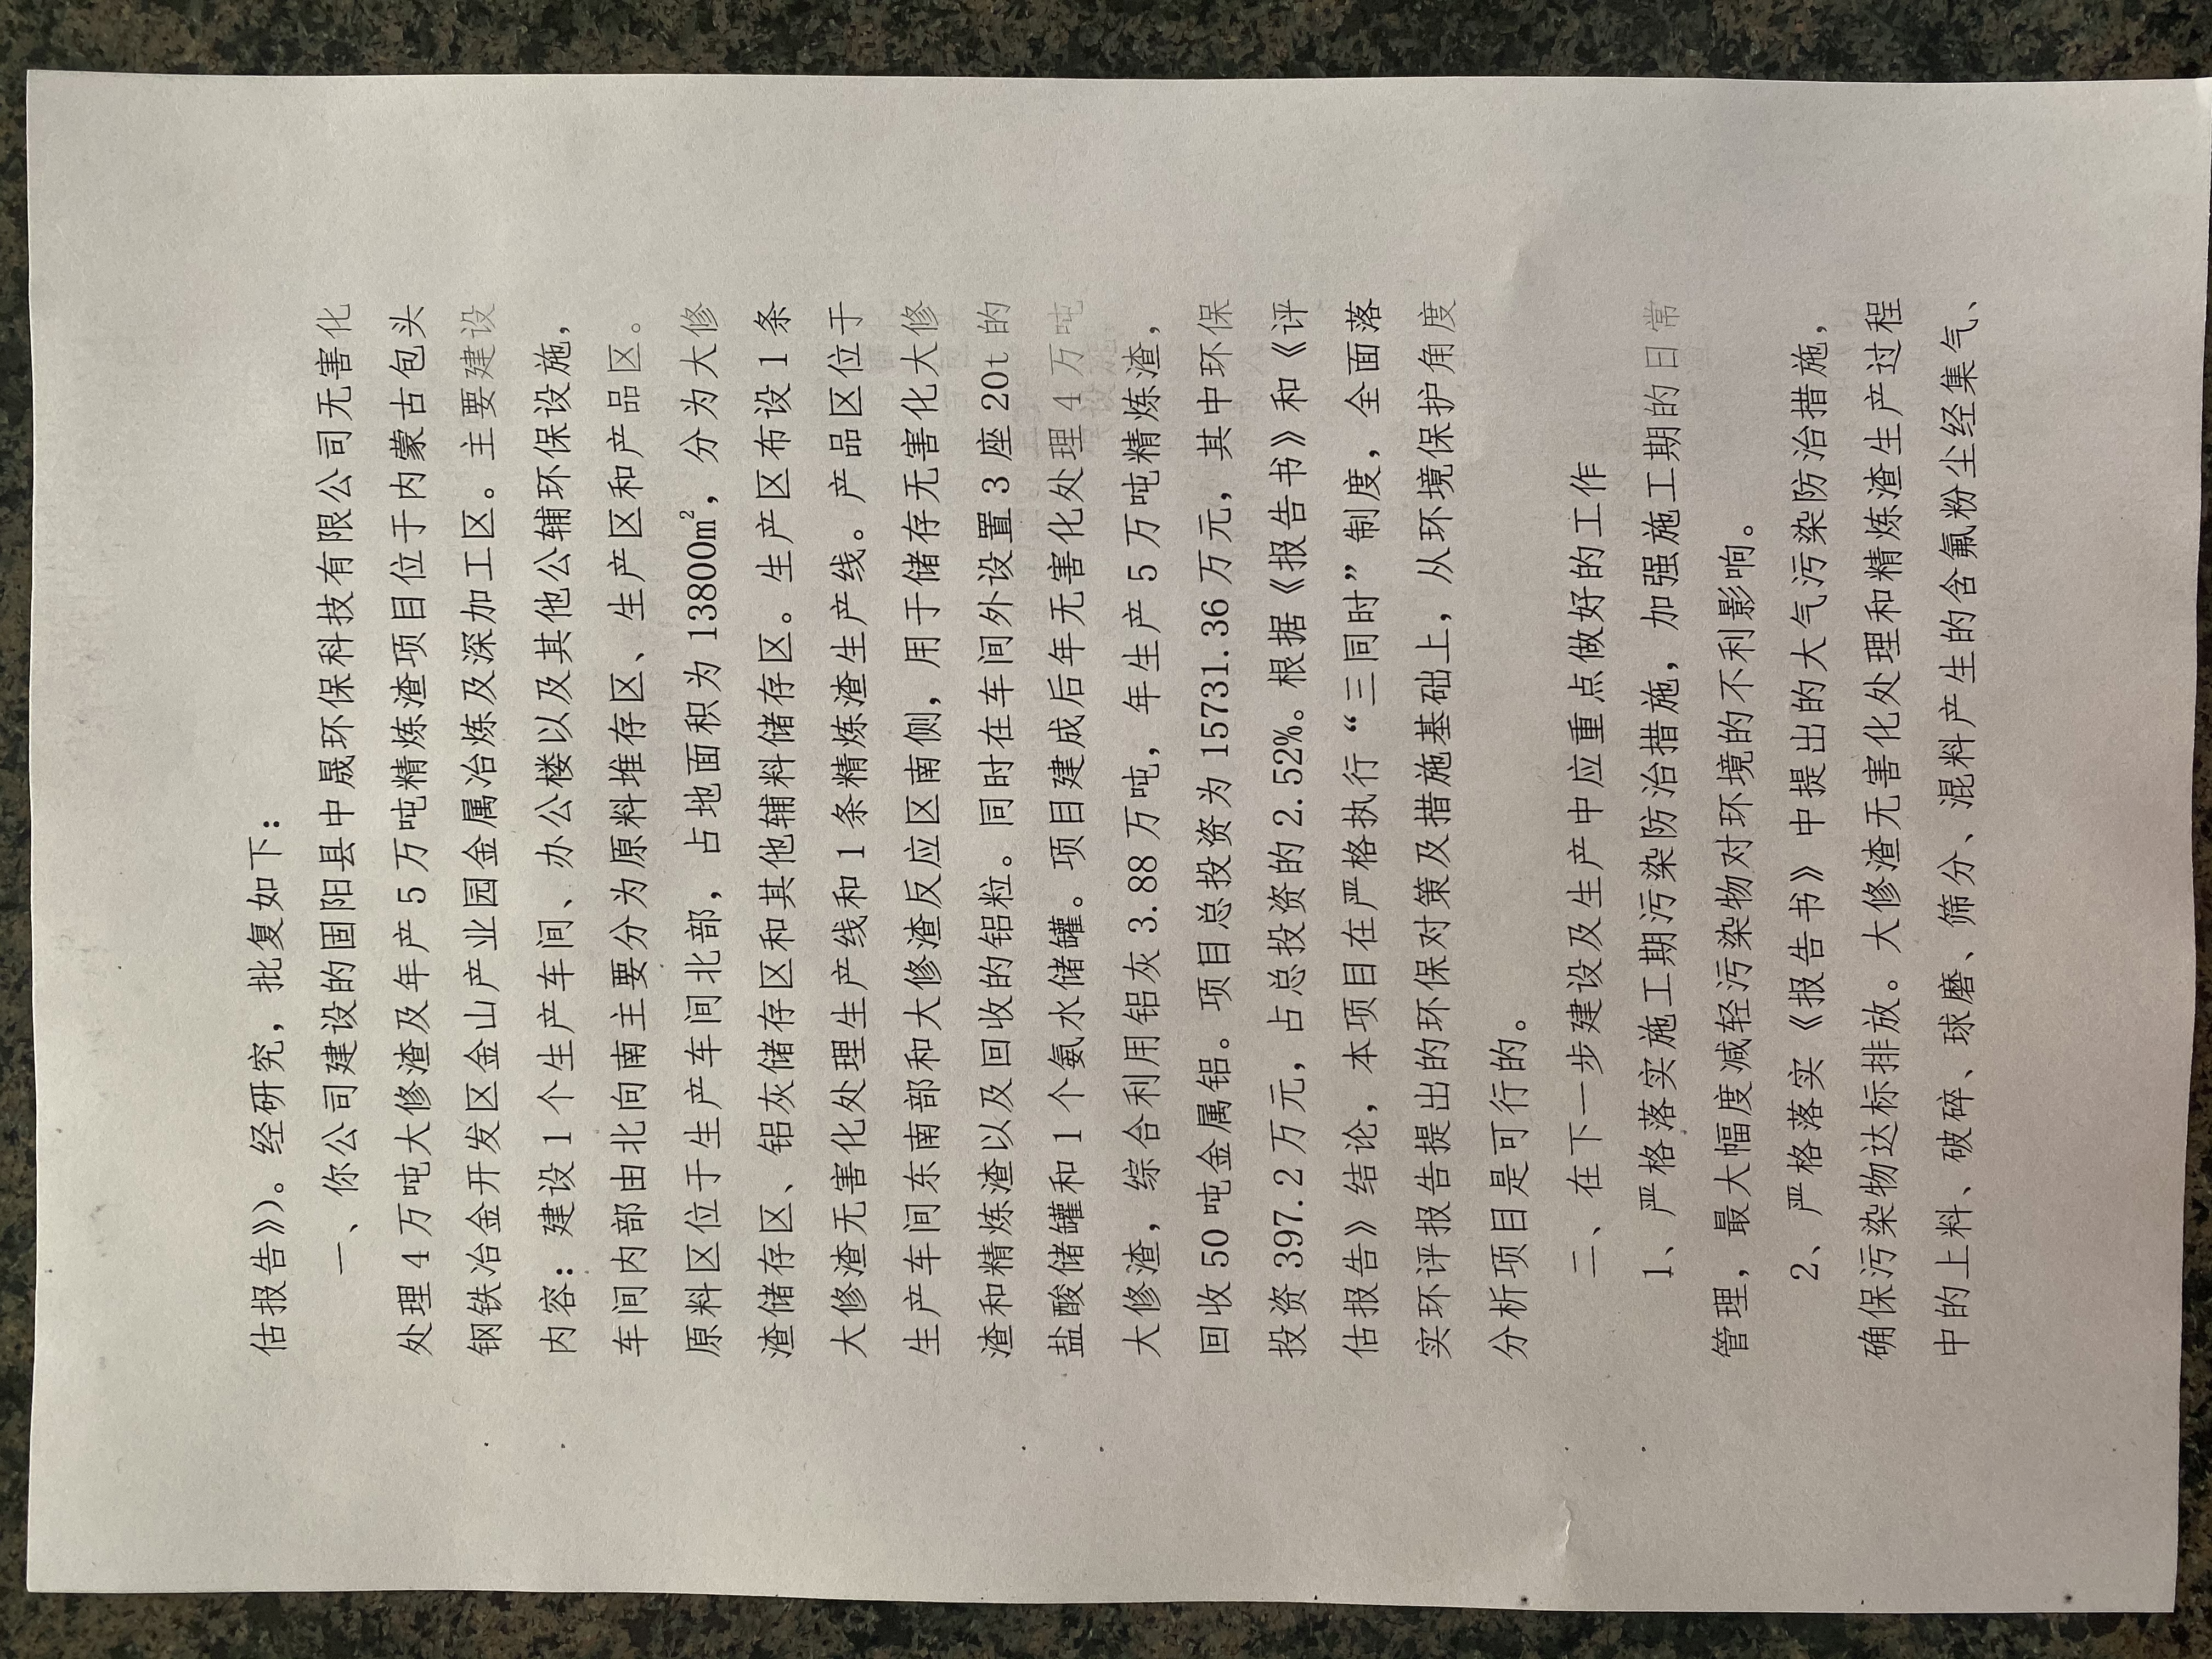 估报告》）。经研究，批复如下：
一、你公司建设的固阳县中晟环保科技有限公司无害化
处理 4 万吨大修渣及年产 5 万吨精炼渣项目位于内蒙古包头
钢铁冶金开发区金山产业园金属冶炼及深加工区。主要建设
内容：建设 1 个生产车间、办公楼以及其他公辅环保设施，
车间内部由北向南主要分为原料堆存区、生产区和产品区。
原料区位于生产车间北部，占地面积为 13800m²，分为大修
渣储存区、铝灰储存区和其他辅料储存区。生产区布设 1 条
大修渣无害化处理生产线和 1 条精炼渣生产线。产品区位于
生产车间东南部和大修渣反应区南侧，用于储存无害化大修
渣和精炼渣以及回收的铝粒。同时在车间外设置 3 座 20t 的
盐酸储罐和 1 个氨水储罐。项目建成后年无害化处理 4 万吨
大修渣，综合利用铝灰 3.88 万吨，年生产 5 万吨精炼渣，
回收 50 吨金属铝。项目总投资为 15731.36 万元，其中环保
投资 397.2 万元，占总投资的 2.52%。根据《报告书》和《评
估报告》结论，本项目在严格执行“三同时”制度，全面落
实环评报告提出的环保对策及措施基础上，从环境保护角度
分析项目是可行的。
二、在下一步建设及生产中应重点做好的工作
1、严格落实施工期污染防治措施，加强施工期的日常
管理，最大幅度减轻污染物对环境的不利影响。
2、严格落实《报告书》中提出的大气污染防治措施，
确保污染物达标排放。大修渣无害化处理和精炼渣生产过程
中的上料、破碎、球磨、筛分、混料产生的含氟粉尘经集气、